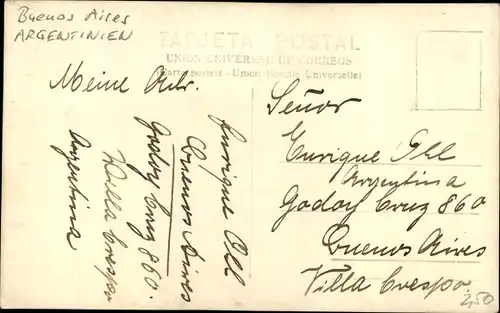 Buenos Aires
ARGENTINIEN
TARJETA POSTAL
UNION UNIVERSAL DE CORREOS
(Carte postale - Union Postale Universelle)
Meine Adr.
Enrique Oll
Buenos Aires
Godoy Cruz 860.
Villa Crespo
Argentina
Señor
Enrique Oll
Argentina
Godoy Cruz 860
Buenos Aires
Villa Crespo.
2,50